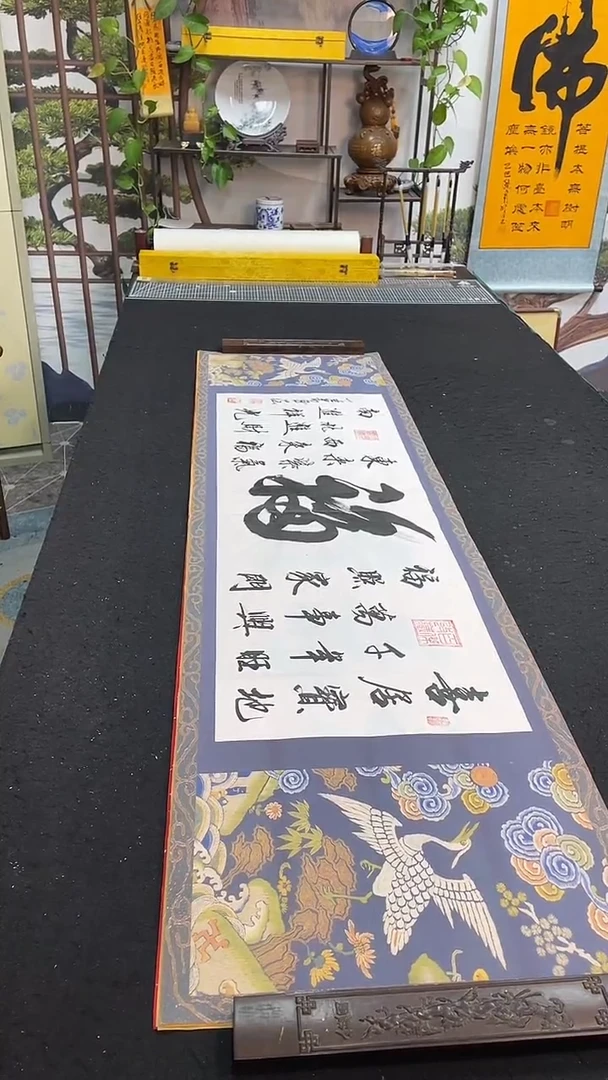 喜居寶地
千年旺
福照家門
萬事興
福
東來紫氣
西來福
南進祥光
北進財
佛
菩提本無樹明
鏡亦非臺本來
無一物何處惹
塵埃